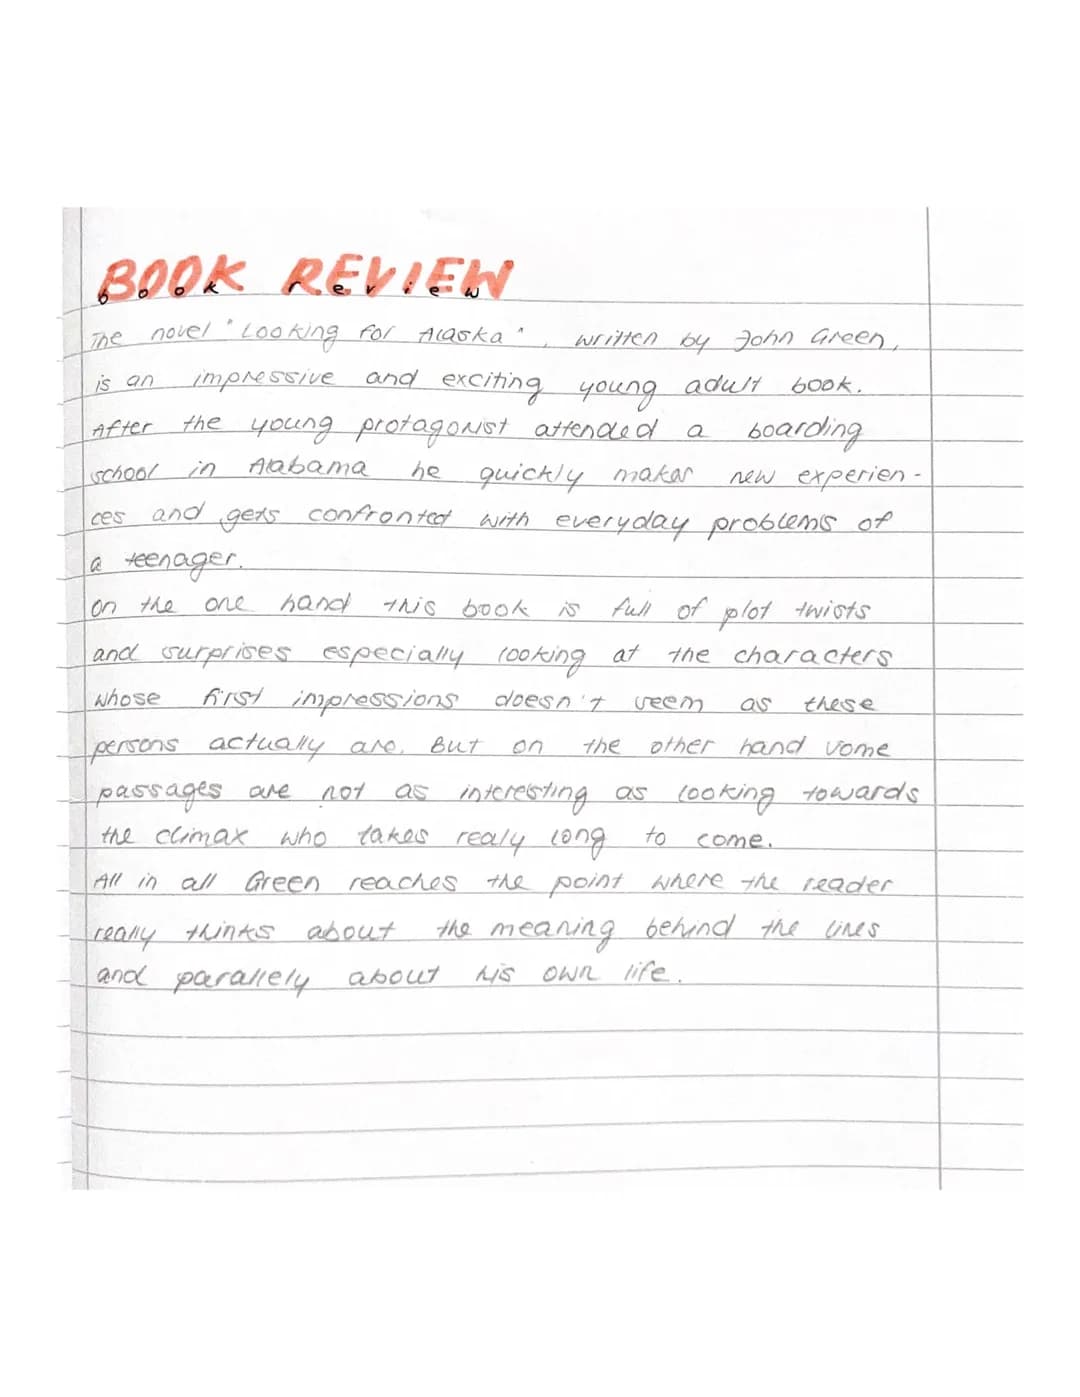 BOOK REVIEW
book review
The novel "Looking for Alaska", written by John Green,
is an impressive and exciting young adult book.
After the young protagonist attended a boarding
school in Alabama he quickly makes new experien-
ces and gets confronted with everyday problems of
a teenager.
On the one hand this book is full of plot twists
and surprises especially looking at the characters
whose first impressions doesn't seem as these
persons actually are. But on the other hand some
passages are not as interesting as looking towards
the climax who takes realy long to come.
All in all Green reaches the point where the reader
really thinks about the meaning behind the lines
and parallely about his own life.